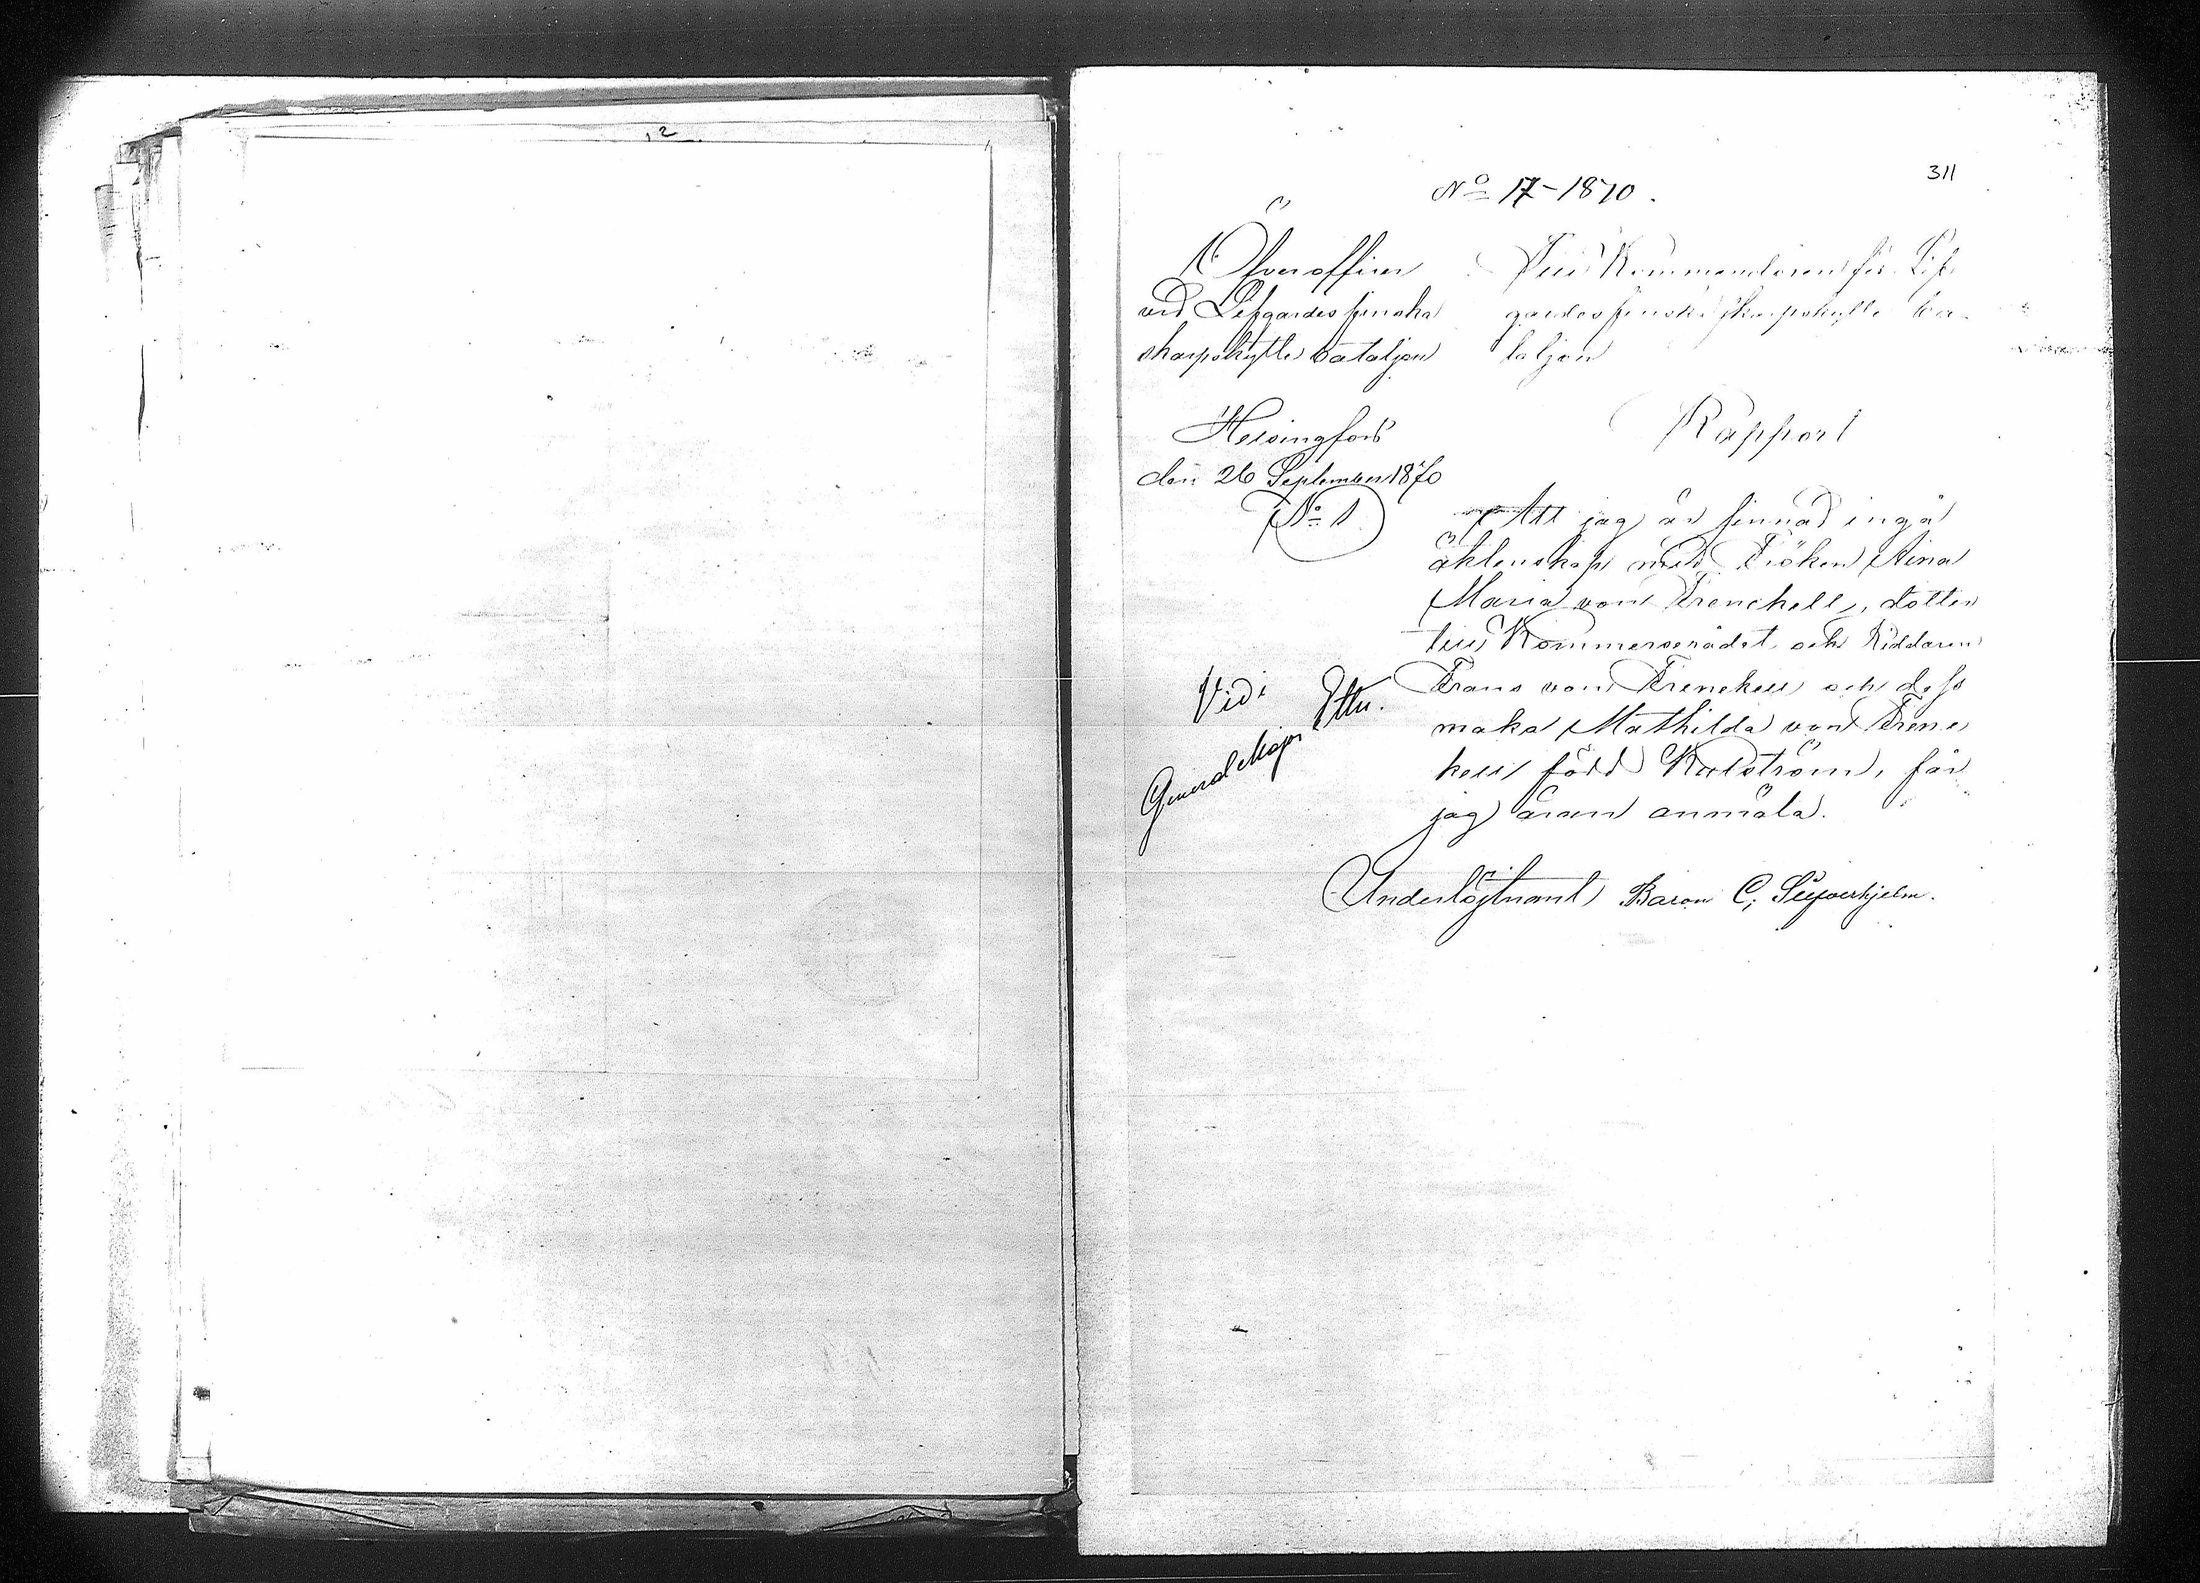 12.
311
No 17-1870.
Öfverofficer
vid Lifgardes finska
skarpskytte bataljon
Helsingfors
den 26 September 1870
No 1
Till Kommendören för Lif-
gardes finska skarpskytte ba-
taljon
Rapport
Att jag är sinnad ingå
äktenskap med Fröken Aina
Maria von Frenckell, dotter
till Kommerserådet och Riddaren
Frans von Frenckell och dess
maka Mathilda von Frenc
kell född Karlström, får
jag äran anmäla.
Underlöjtnant Baron C. Silfverhjelm.
Vidi
General Major